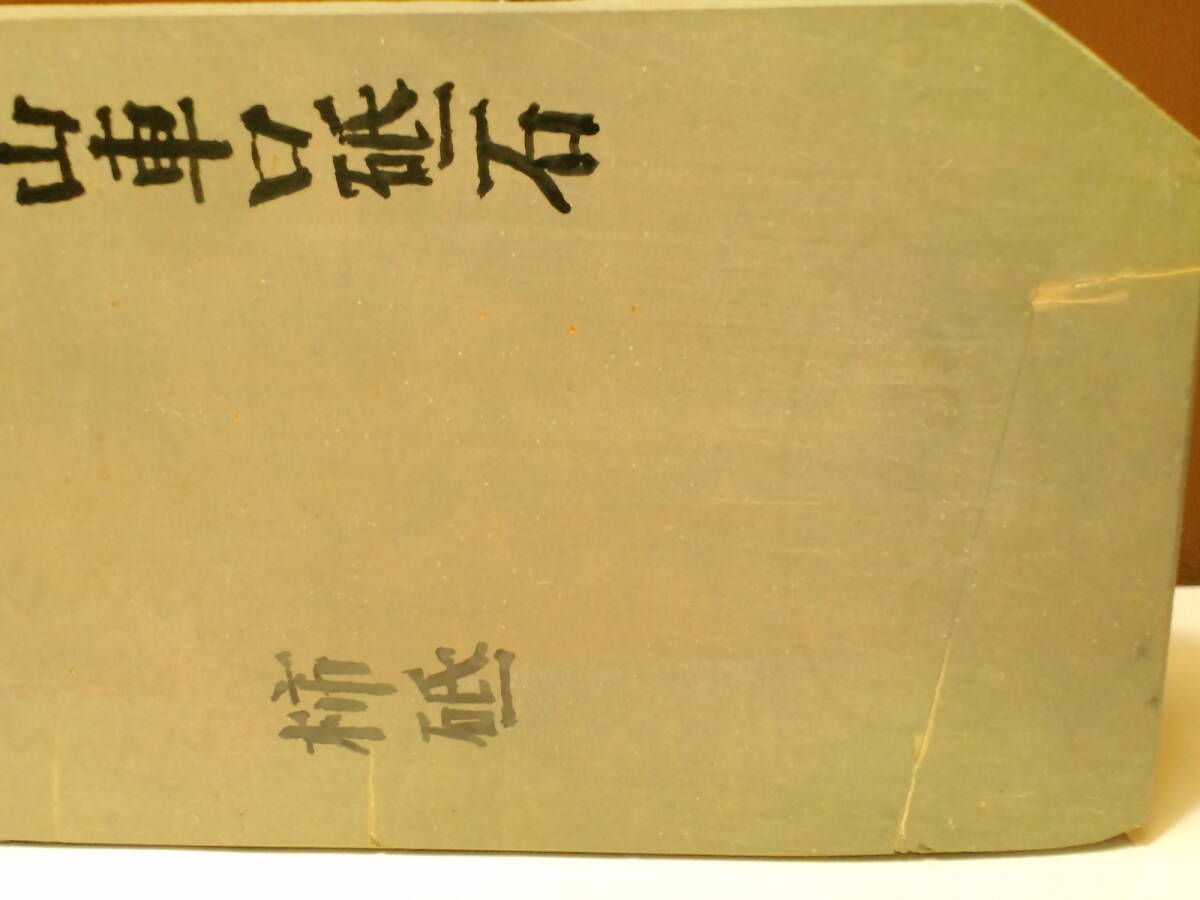 山車口砥石
柿砥